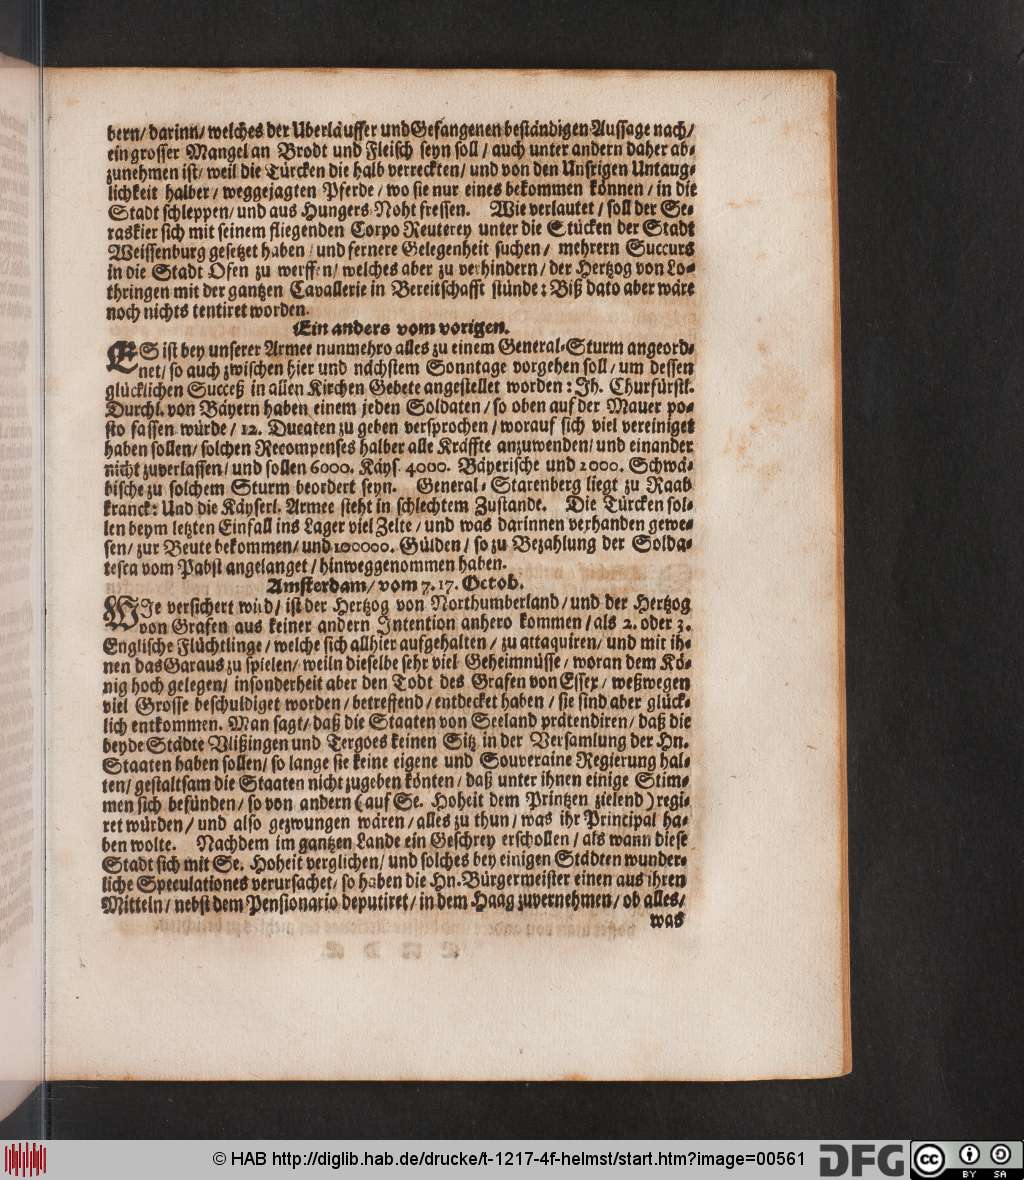 bern/ darinn/ welches der Uberläuffer und Gefangenen beständigen Aussage nach/
ein grosser Mangel an Brodt und Fleisch seyn soll / auch unter andern daher ab-
zunehmen ist/ weil die Türcken die halb verreckten/ und von den Unsrigen Untaug-
lichkeit halber / weggejagten Pferde / wo sie nur eines bekommen können / in die
Stadt schleppen/ und aus Hungers-Noht fressen. Wie verlautet / soll der Se-
raskier sich mit seinem fliegenden Corpo Reuterey unter die Stücken der Stadt
Weissenburg gesetzet haben / und fernere Gelegenheit suchen / mehrern Succurs
in die Stadt Ofen zu werffen/ welches aber zu verhindern / der Hertzog von Lo-
thringen mit der gantzen Cavallerie in Bereitschafft stünde: Biß dato aber wäre
noch nichts tentiret worden.
Ein anders vom vorigen.
ES ist bey unserer Armee nunmehro alles zu einem General-Sturm angeord-
net/ so auch zwischen hier und nächstem Sonntage vorgehen soll / um dessen
glücklichen Succeß in allen Kirchen Gebete angestellet worden: Jh. Churfürstl.
Durchl. von Bäyern haben einem jeden Soldaten / so oben auf der Mauer po-
sto fassen würde / 12. Ducaten zu geben versprochen / worauf sich viel vereiniget
haben sollen/ solchen Recompenses halber alle Kräffte anzuwenden/ und einander
nicht zuverlassen/ und sollen 6000. Käys. 4000. Bäyerische und 2000. Schwä-
bische zu solchem Sturm beordert seyn. General-Starenberg liegt zu Raab
kranck: Und die Käyserl. Armee steht in schlechtem Zustande. Die Türcken sol-
len beym letzten Einfall ins Lager viel Zelte / und was darinnen verhanden gewe-
sen/ zur Beute bekommen/ und 100000. Gülden / so zu Bezahlung der Solda-
tesca vom Pabst angelanget / hinweggenommen haben.
Amsterdam/ vom 7. 17. Octob.
WIe versichert wird / ist der Hertzog von Northumberland / und der Hertzog
von Grafen aus keiner andern Intention anhero kommen / als 2. oder 3.
Englische Flüchtlinge / welche sich allhier aufgehalten / zu attaquiren/ und mit ih-
nen das Garaus zu spielen/ weiln dieselbe sehr viel Geheimnüsse / woran dem Kö-
nig hoch gelegen/ insonderheit aber den Todt des Grafen von Essex / weßwegen
viel Grosse beschuldiget worden / betreffend / entdecket haben / sie sind aber glück-
lich entkommen. Man sagt/ daß die Staaten von Seeland prätendiren/ daß die
beyde Städte Vlißingen und Tergoes keinen Sitz in der Versamlung der Hn.
Staaten haben sollen/ so lange sie keine eigene und Souveraine Regierung hal-
ten / gestaltsam die Staaten nicht zugeben könten / daß unter ihnen einige Stim-
men sich befünden / so von andern (auf Se. Hoheit dem Printzen zielend) regi-
ret würden / und also gezwungen wären / alles zu thun / was ihr Principal ha-
ben wolte. Nachdem im gantzen Lande ein Geschrey erschollen / als wann diese
Stadt sich mit Se. Hoheit verglichen / und solches bey einigen Städten wunder-
liche Speculationes verursachet / so haben die Hn. Bürgermeister einen aus ihren
Mitteln / nebst dem Pensionario deputiret / in dem Haag zuvernehmen / ob alles/
was
© HAB http://diglib.hab.de/drucke/t-1217-4f-helmst/start.htm?image=00561
DFG
cc BY SA